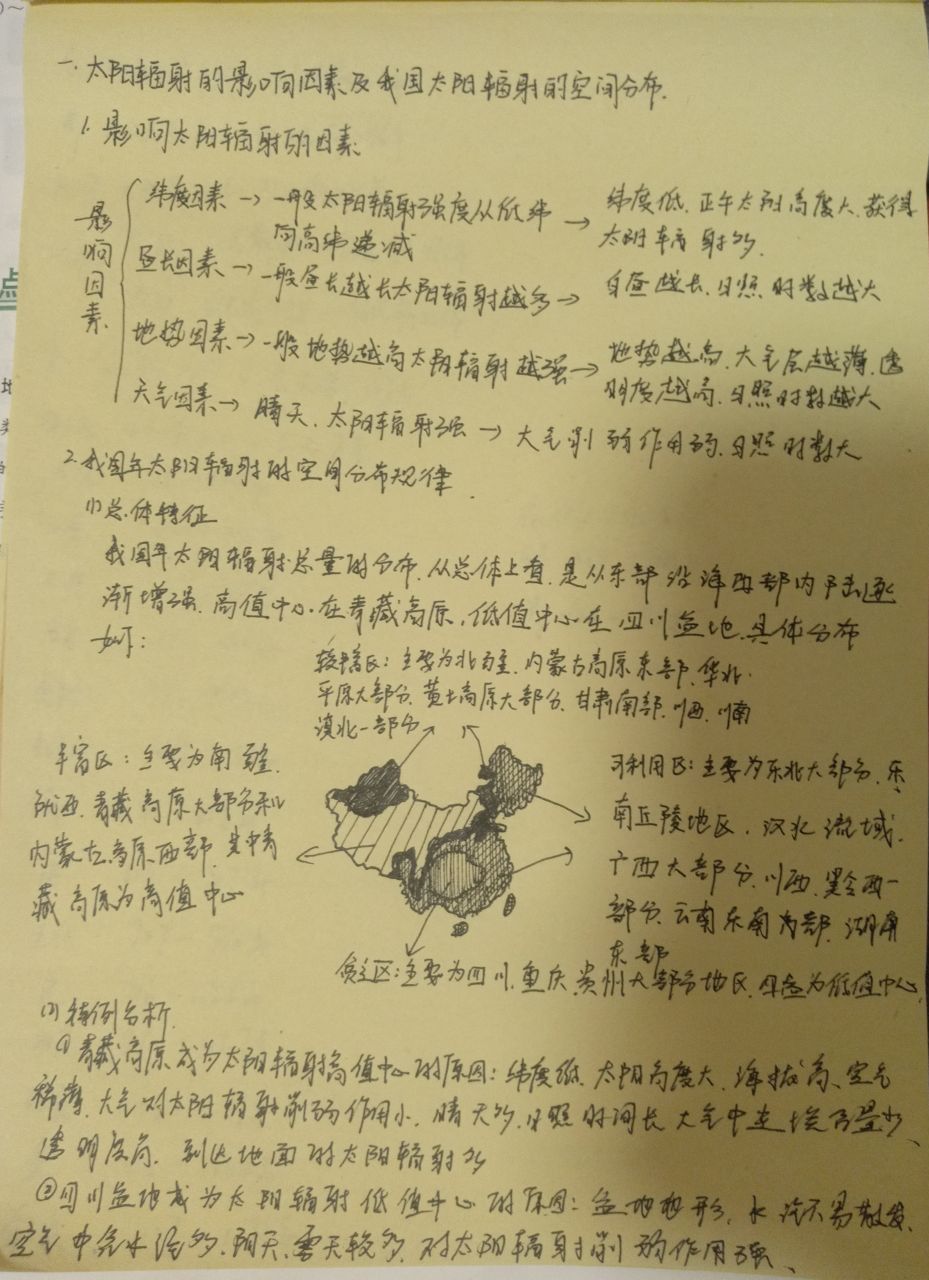 一、太阳辐射的影响因素及我国太阳辐射的空间分布.
1. 影响太阳辐射的因素
影响因素
纬度因素→一般太阳辐射强度从低纬向高纬递减→纬度低、正午太阳高度大、获得太阳辐射多.
昼长因素→一般昼长越长太阳辐射越多→白昼越长、日照时数越大
地势因素→一般地势越高太阳辐射越强→地势越高、大气层越薄、透明度越高、日照时数越大
天气因素→晴天、太阳辐射强→大气削弱作用弱、日照时数大
2. 我国年太阳辐射的空间分布规律
(1) 总体特征
我国年太阳辐射总量的分布、从总体上看、是从东部沿海西部内陆逐
渐增强、高值中心在青藏高原、低值中心在四川盆地、具体分布
如下:
较丰富区: 主要为北疆、内蒙古高原东部、华北
平原大部分、黄土高原大部分、甘肃南部、川西、川南
滇北一部分
丰富区: 主要为南疆、
青藏高原大部分和
内蒙古高原西部、其中青
藏高原为高值中心
可利用区: 主要为东北大部分、东
南丘陵地区、汉水流域、
广西大部分、川西、黔西一
部分、云南东南部、湖南
东部
贫乏区: 主要为四川、重庆、贵州大部分地区、为低值中心
(2) 特例分析.
① 青藏高原成为太阳辐射高值中心的原因: 纬度低、太阳高度大、海拔高、空气
稀薄、大气对太阳辐射削弱作用小、晴天多、日照时间长、大气中尘埃含量少、
透明度高、到达地面的太阳辐射多
② 四川盆地成为太阳辐射低值中心的原因: 盆地地形、水汽不易散发、
空气中含水汽多、阴天、雾天较多、对太阳辐射削弱作用强、
点
地